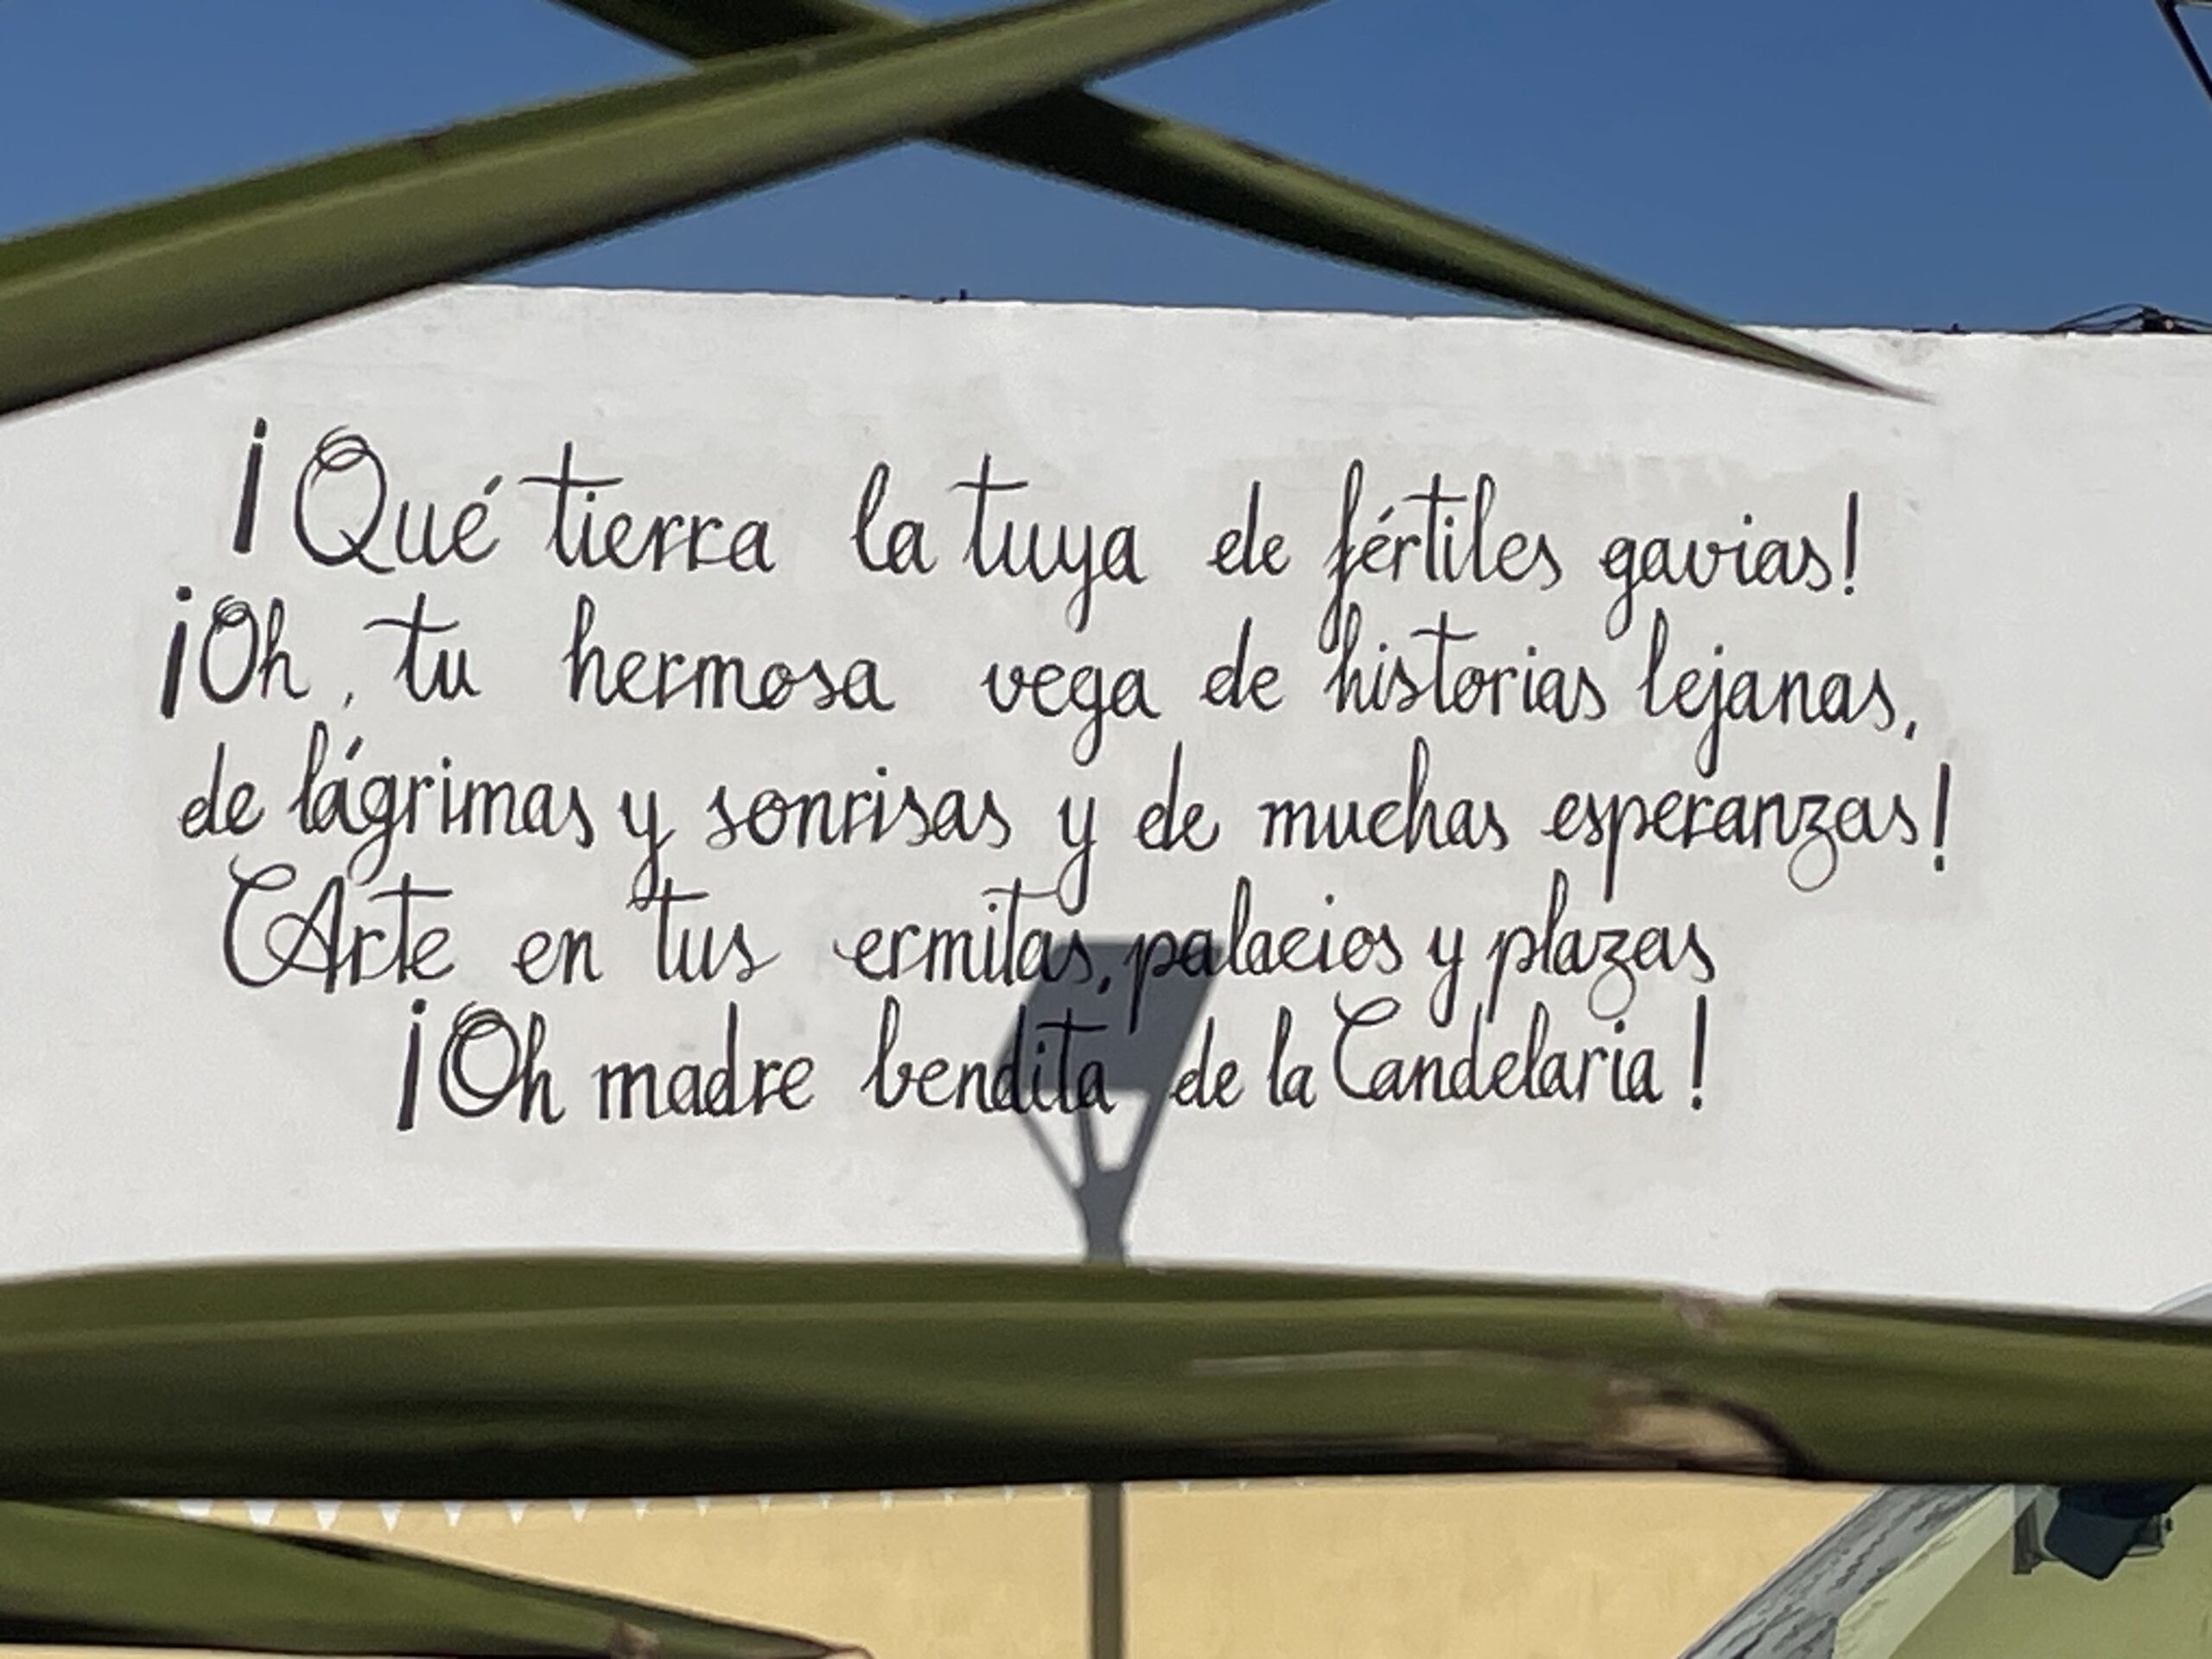 ¡Qué tierra la tuya de fértiles gavias!
¡Oh, tu hermosa vega de historias lejanas,
de lágrimas y sonrisas y de muchas esperanzas!
Arte en tus ermitas, palacios y plazas
¡Oh madre bendita de la Candelaria!